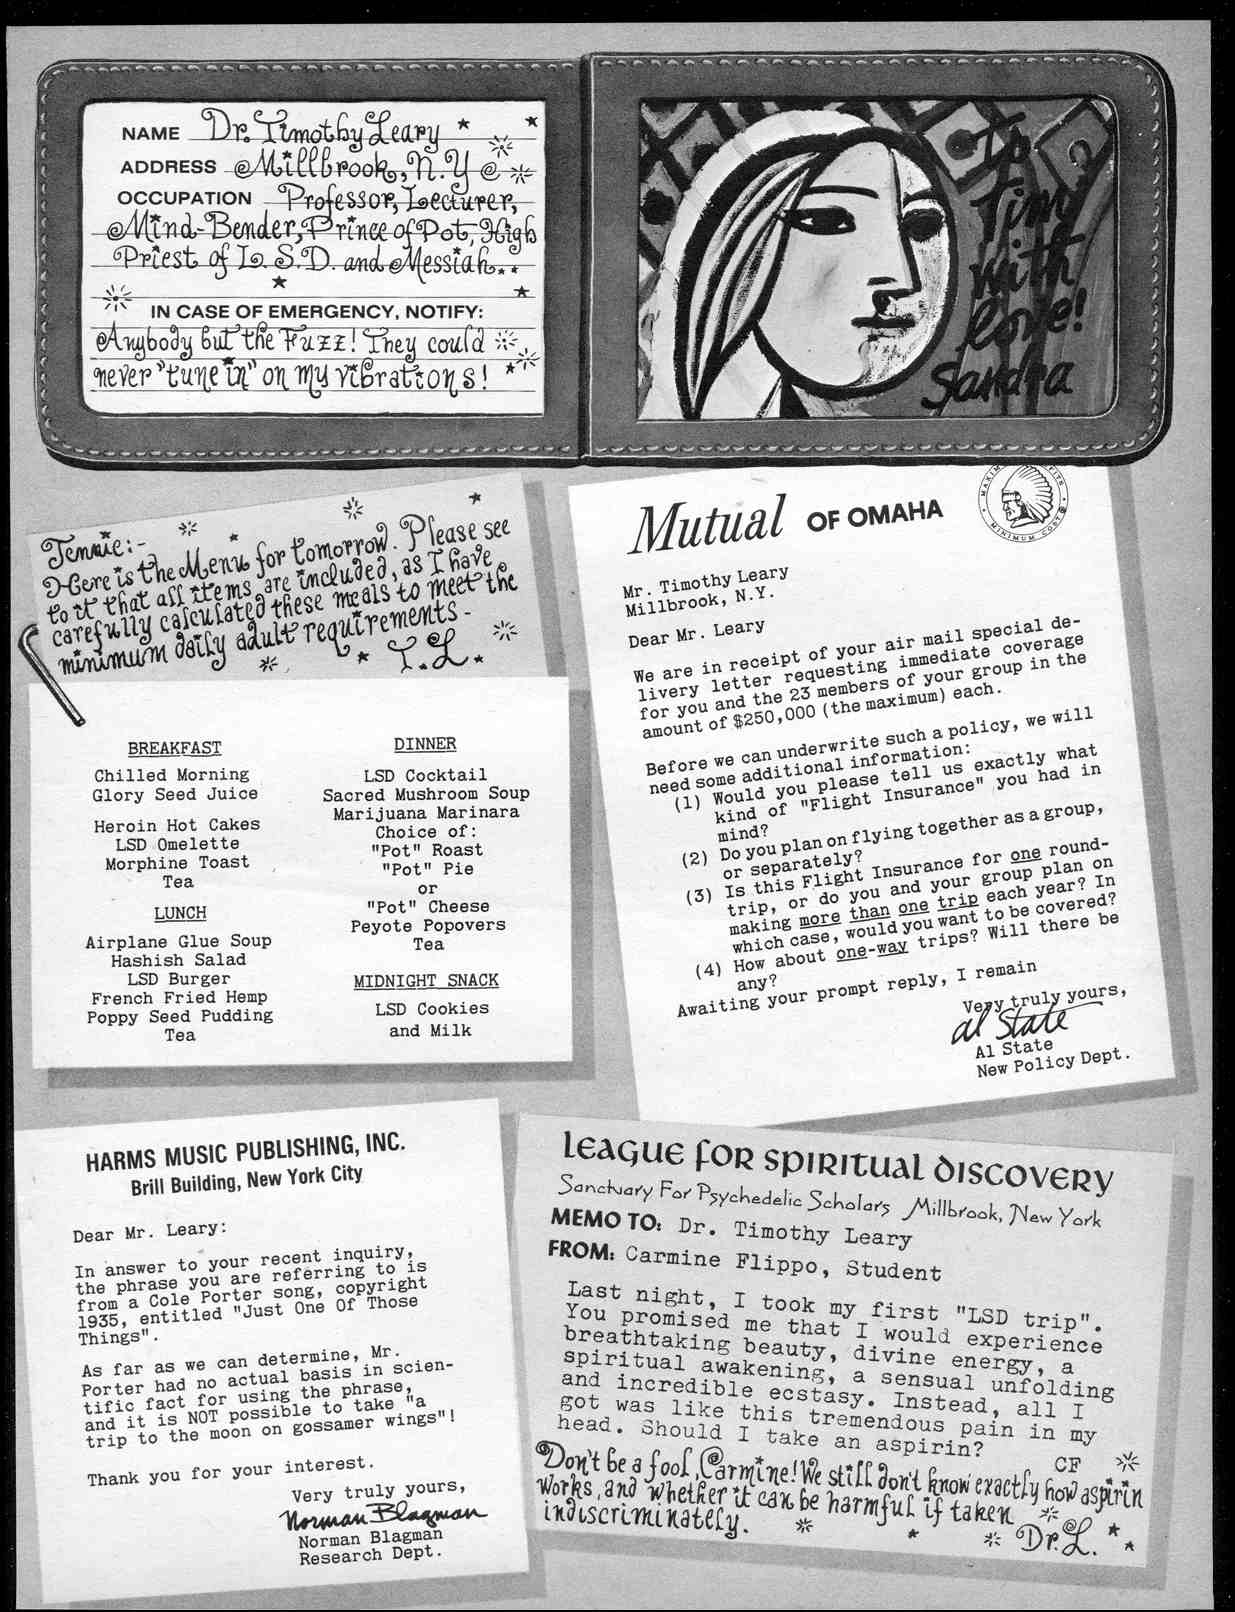 NAME Dr. Timothy Leary
ADDRESS Millbrook, N.Y
OCCUPATION Professor, Lecturer,
Mind-Bender, Prince of Pot, High
Priest of L.S.D. and Messiah..
IN CASE OF EMERGENCY, NOTIFY:
Anybody but the Fuzz! They could
never "tune in" on my vibrations!
To
Tim
with
love!
Sandra
Jennie:-
Here is the Menu for tomorrow. Please see
to it that all items are included, as I have
carefully calculated these meals to meet the
minimum daily adult requirements-
T.L.
BREAKFAST
Chilled Morning
Glory Seed Juice
Heroin Hot Cakes
LSD Omelette
Morphine Toast
Tea
LUNCH
Airplane Glue Soup
Hashish Salad
LSD Burger
French Fried Hemp
Poppy Seed Pudding
Tea
DINNER
LSD Cocktail
Sacred Mushroom Soup
Marijuana Marinara
Choice of:
"Pot" Roast
"Pot" Pie
or
"Pot" Cheese
Peyote Popovers
Tea
MIDNIGHT SNACK
LSD Cookies
and Milk
Mutual OF OMAHA
MINIMUM COST
Mr. Timothy Leary
Millbrook, N.Y.
Dear Mr. Leary
We are in receipt of your air mail special de-
livery letter requesting immediate coverage
for you and the 23 members of your group in the
amount of $250,000 (the maximum) each.
Before we can underwrite such a policy, we will
need some additional information:
(1) Would you please tell us exactly what
kind of "Flight Insurance" you had in
mind?
(2) Do you plan on flying together as a group,
or separately?
(3) Is this Flight Insurance for one round-
trip, or do you and your group plan on
making more than one trip each year? In
which case, would you want to be covered?
(4) How about one-way trips? Will there be
any?
Awaiting your prompt reply, I remain
Very truly yours,
Al State
Al State
New Policy Dept.
HARMS MUSIC PUBLISHING, INC.
Brill Building, New York City
Dear Mr. Leary:
In answer to your recent inquiry,
the phrase you are referring to is
from a Cole Porter song, copyright
1935, entitled "Just One Of Those
Things".
As far as we can determine, Mr.
Porter had no actual basis in scien-
tific fact for using the phrase,
and it is NOT possible to take "a
trip to the moon on gossamer wings"!
Thank you for your interest.
Very truly yours,
Norman Blagman
Norman Blagman
Research Dept.
LEAGUE FOR SPIRITUAL DISCOVERY
Sanctuary For Psychedelic Scholars Millbrook, New York
MEMO TO: Dr. Timothy Leary
FROM: Carmine Flippo, Student
Last night, I took my first "LSD trip".
You promised me that I would experience
breathtaking beauty, divine energy, a
spiritual awakening, a sensual unfolding
and incredible ecstasy. Instead, all I
got was like this tremendous pain in my
head. Should I take an aspirin?
CF
Don't be a fool, Carmine! We still don't know exactly how aspirin
works, and whether it can be harmful if taken
indiscriminately.
Dr. L.